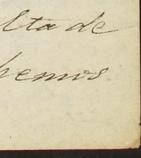 lta de
hemos